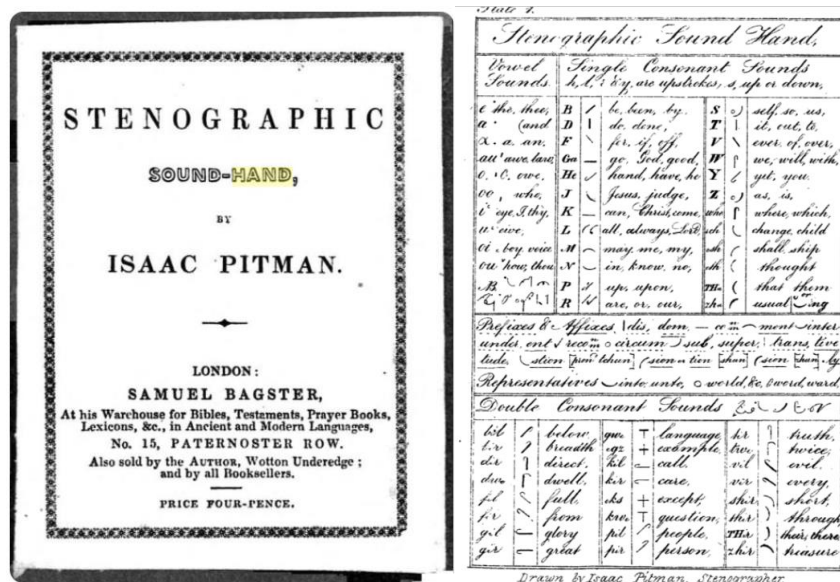 STENOGRAPHIC
SOUND-HAND,
BY
ISAAC PITMAN.
LONDON:
SAMUEL BAGSTER,
At his Warehouse for Bibles, Testaments, Prayer Books,
Lexicons, &c., in Ancient and Modern Languages,
No. 15, PATERNOSTER ROW.
Also sold by the AUTHOR, Wotton Underedge;
and by all Booksellers.
PRICE FOUR-PENCE.
Plate 1.
Stenographic Sound Hand,
Vowel Sounds.
Single Consonant Sounds
h, l, r & y, are upstrokes, s, up or down,
the, thee, B be, been, by. S self, so, us,
(and D do, done, T it, out, to,
a. an, F for, if, off, V ever, of, over,
awe, law, Ga go, God, good, W we, will, with,
owe, He hand, have, he Y yet, you.
who, J Jesus, judge, Z as, is,
eye, I, thy, K can, Christ, come, whe where, which,
L all, always, Lord, change, child
oi boy, voice M may, me, my, shall, ship
ou how, thou N in, know, no, thought
P up, upon, TH that them
R are, or, our, usual ing
Prefixes & Affixes, dis, dom, ment inter
under, ent recom circum sub, super, trans, tive
tude, stion sion tion shun sion
Representatives into, unto, world, &c, word, ward,
Double Consonant Sounds
bil below, gwe language, tir truth,
bir breadth egz example, twe twice,
dir direct, kil call, vil evil,
dwe dwell, kir care, vir every,
fil full, eks except, shir short,
fir from kwe question, thir through
gil glory pil people, THir their, there
gir great pir person, zhir treasure
Drawn by Isaac Pitman, Stenographer